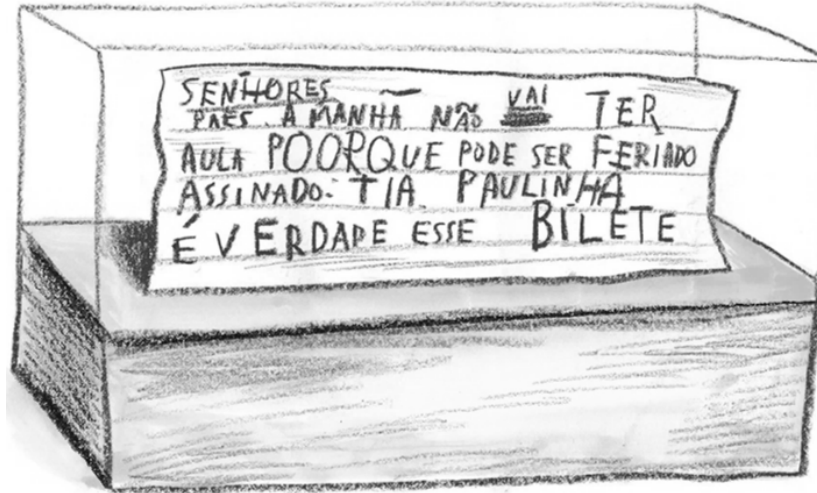 SENHORES
PAES. A MANHÃ NÃO VAI TER
AULA POORQUE PODE SER FERIADO
ASSINADO: TIA PAULINHA
É VERDADE ESSE BILETE